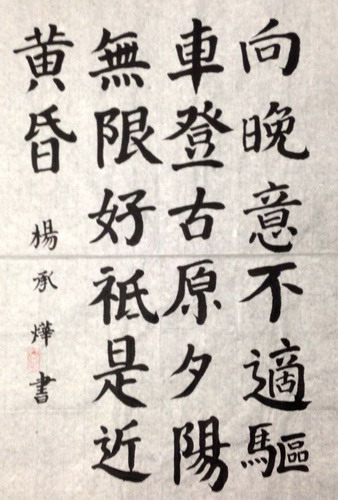 向晚意不適驅
車登古原夕陽
無限好祗是近
黄昏
楊承燁書